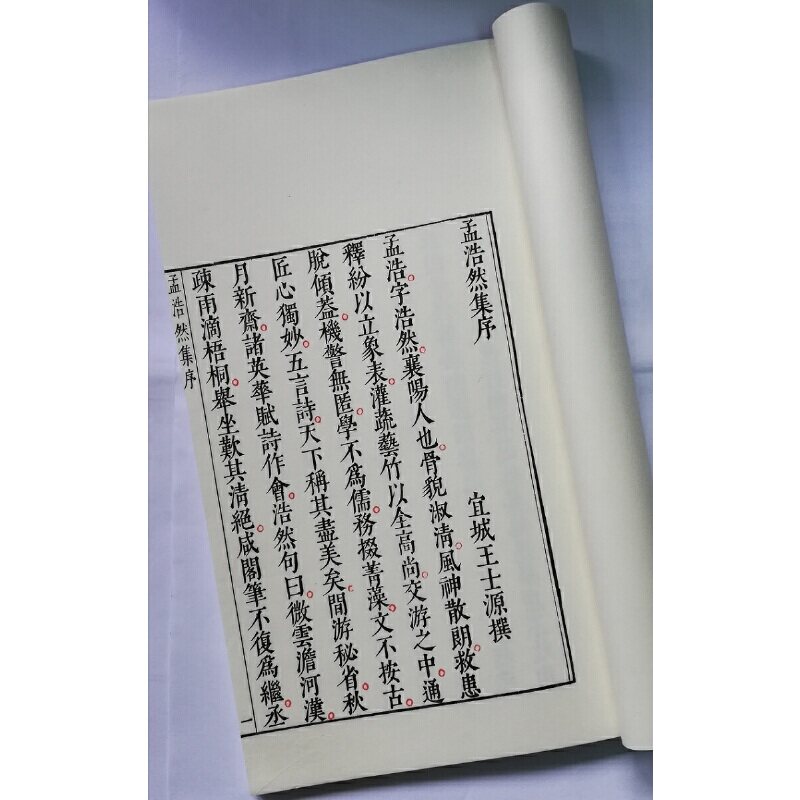 孟浩然集序
宜城王士源撰
孟浩字浩然襄陽人也骨貌淑清風神散朗救患
釋紛以立象表灌蔬藝竹以全高尚交游之中通
脫傾葢機警無匿學不爲儒務掇菁藻文不按古
匠心獨妙五言詩天下稱其盡美矣間游秘省秋
月新齋諸英華賦詩作會浩然句曰微雲澹河漢
疎雨滴梧桐舉坐歎其清絕咸閣筆不復爲繼丞
孟浩然集序
一